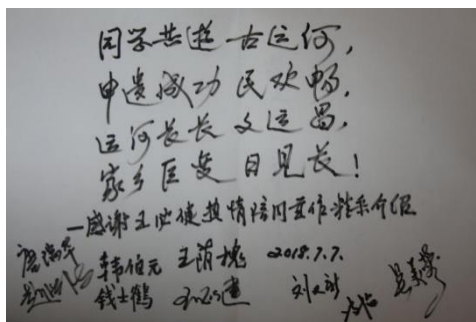 同学共逛古运河,
申遗成功民欢畅,
运河长长文运昌,
家乡巨变日见长!
—感谢王必健热情陪同并作精采介绍
韩伯元 王荫槐 2018.7.7.
钱士鹤